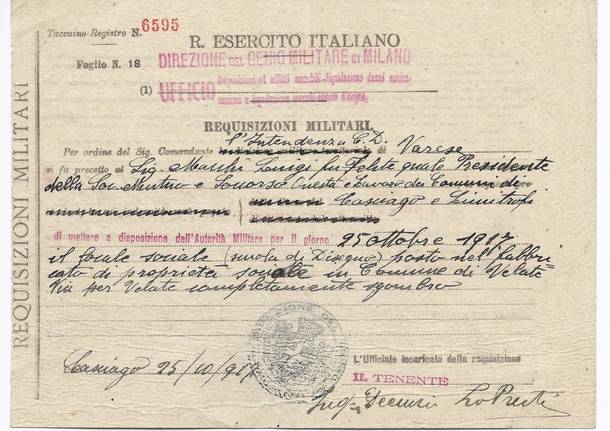 Taccuino-Registro N. 6595
Foglio N. 18
R. ESERCITO ITALIANO
DIREZIONE DEL GENIO MILITARE DI MILANO
(1) UFFICIO
REQUISIZIONI MILITARI
REQUISIZIONI MILITARI.
Per ordine del Sig. Comandante l'Intendenza C.D. di Varese
si fa precetto al Sig. Luigi fu Felice quale Presidente
della Soc. Mutuo e Soccorso e Lavoro da Comune di
Casciago e Limitrofi
di mettere a disposizione dell'Autorità Militare per il giorno 25 ottobre 1917
il locale sociale (scuola di Disegno) posto nel fabbri
cato di proprietà sociale in Comune di Velate
Via per Velate completamente sgombro
Casciago 25/10/917
L'Ufficiale incaricato della requisizione
IL TENENTE
Ing.